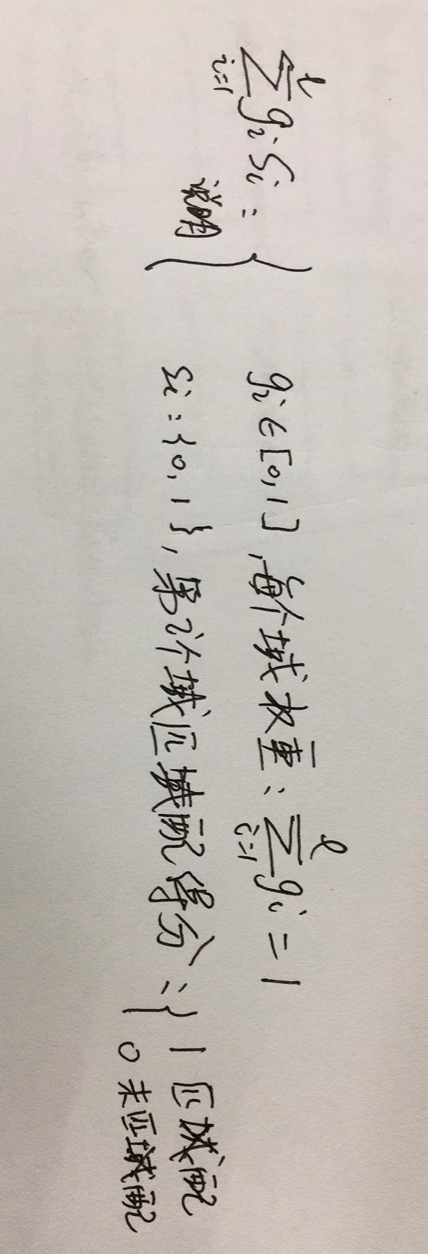 \sum_{i=1}^{l} g_i S_i : {
说明 {
g_i ∈ [0,1], 每个域权重: \sum_{i=1}^{l} g_i = 1
s_i : {0,1}, 第i个域匹域配得分: {
1 匹域配
0 未匹域配